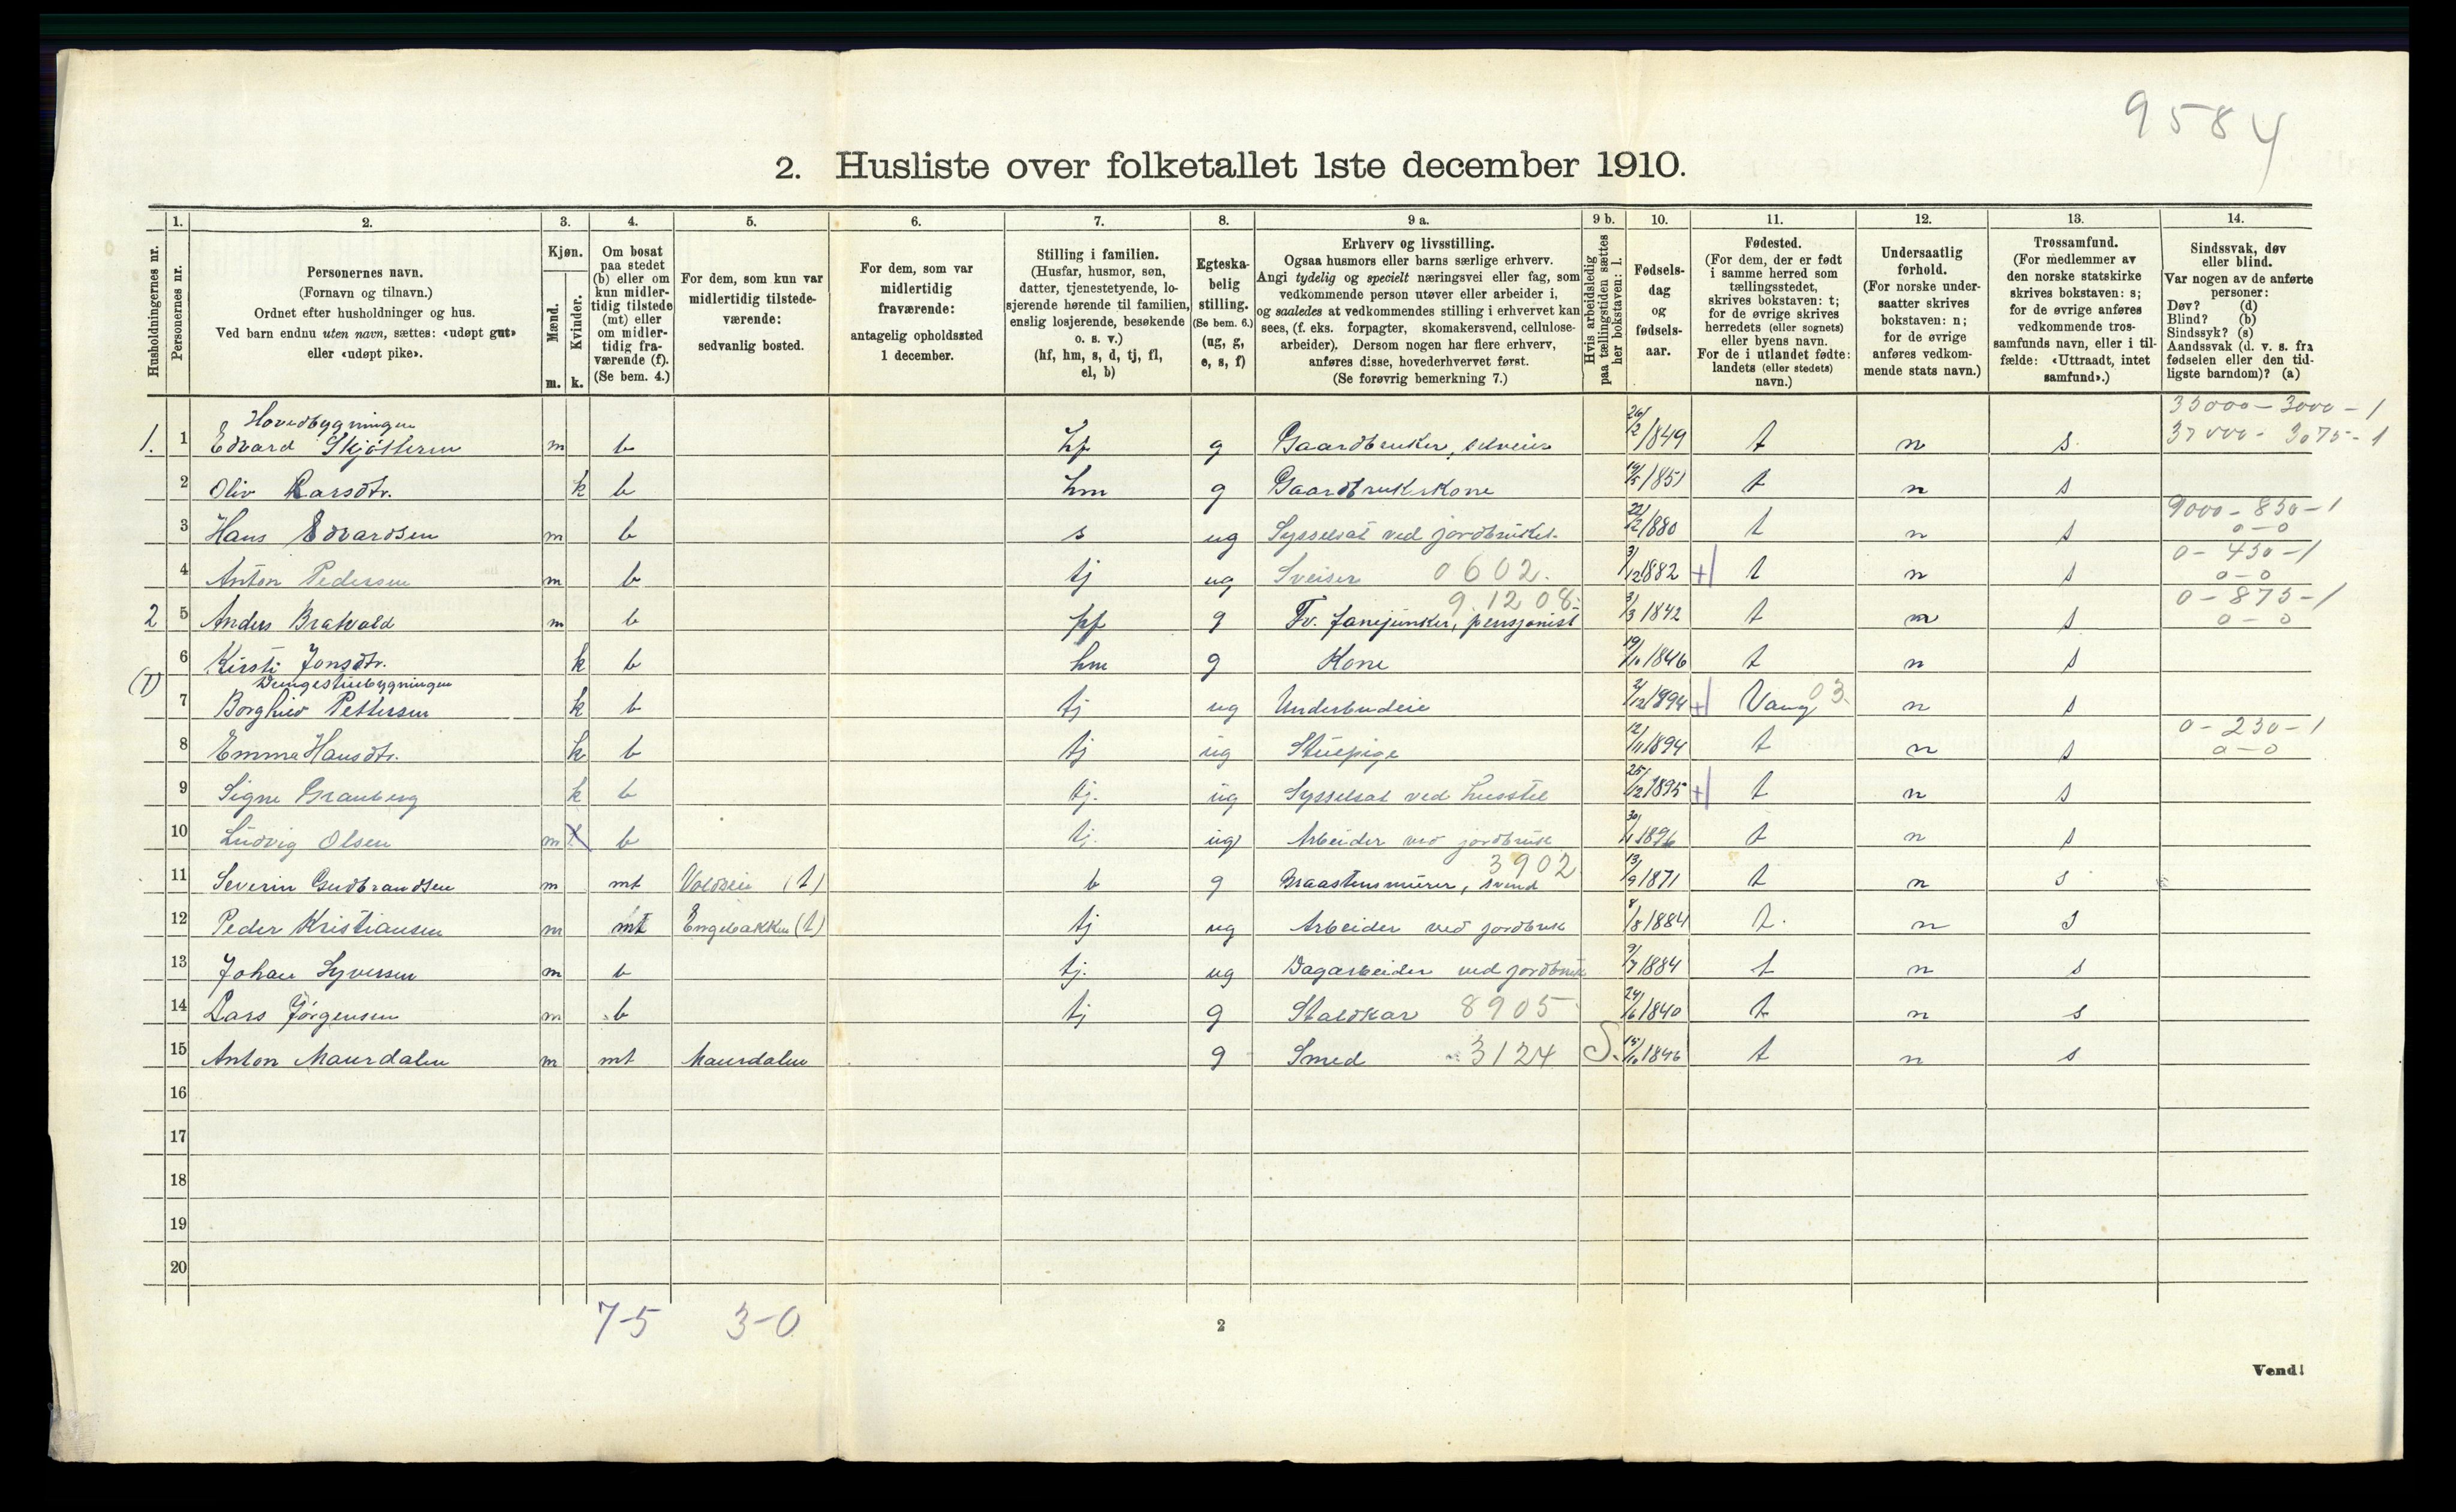 9584
2. Husliste over folketallet 1ste december 1910.
Husholdningernes nr.
1.
Personernes nr.
2.
Personernes navn.
(Fornavn og tilnavn.)
Ordnet efter husholdninger og hus.
Ved barn endnu uten navn, sættes: «udøpt gut»
eller «udøpt pike».
3.
Kjøn.
Mænd.
Kvinder.
m. k.
4.
Om bosat
paa stedet
(b) eller om
kun midler-
tidig tilstede
(mt) eller
om midler-
tidig fra-
værende (f).
(Se bem. 4.)
5.
For dem, som kun var
midlertidig tilstede-
værende:
sedvanlig bosted.
6.
For dem, som var
midlertidig
fraværende:
antagelig opholdssted
1 december.
7.
Stilling i familien.
(Husfar, husmor, søn,
datter, tjenestetyende, lo-
sjerende hørende til familien,
enslig losjerende, besøkende
o. s. v.)
(hf, hm, s, d, tj, fl,
el, b)
8.
Egteska-
belig
stilling.
(Se bem. 6.)
(ug, g,
e, s, f)
9 a.
Erhverv og livsstilling.
Ogsaa husmors eller barns særlige erhverv.
Angi tydelig og specielt næringsvei eller fag, som
vedkommende person utøver eller arbeider i,
og saaledes at vedkommendes stilling i erhvervet kan
sees, (f. eks. forpagter, skomakersvend, cellulose-
arbeider). Dersom nogen har flere erhverv,
anføres disse, hovederhvervet først.
(Se forøvrig bemerkning 7.)
9 b.
Hvis arbeidsledig
paa tællingstiden sættes
her bokstaven: l.
10.
Fødsels-
dag
og
fødsels-
aar.
11.
Fødested.
(For dem, der er født
i samme herred som
tællingsstedet,
skrives bokstaven: t;
for de øvrige skrives
herredets (eller sognets)
eller byens navn.
For de i utlandet fødte:
landets (eller stedets)
navn.)
12.
Undersaatlig
forhold.
(For norske under-
saatter skrives
bokstaven: n;
for de øvrige
anføres vedkom-
mende stats navn.)
13.
Trossamfund.
(For medlemmer av
den norske statskirke
skrives bokstaven: s;
for de øvrige anføres
vedkommende tros-
samfunds navn, eller i til-
fælde: «Uttraadt, intet
samfund».)
14.
Sindssvak, døv
eller blind.
Var nogen av de anførte
personer:
Døv? (d)
Blind? (b)
Sindssyk? (s)
Aandssvak (d. v. s. fra
fødselen eller den tid-
ligste barndom)? (a)
Hovedbygningen 35000-3000-1
1. 1 Edvard m b hf g Gaardbruker, selveier 26/2 1849 t n s 37000-3075-1
2 Oliv Larsdtr. k b hm g Gaardbrukerkone 19/5 1851 t n s
9000-850-1
3 Hans Edvardsen m b s ug Sysselsat ved jordbruket. 22/12 1880 t n s 0-0
0-450-1
4 Anton Pedersen m b tj ug Sveiser 0602. 3/12 1882 + t n s 0-0
9.1208. 0-875-1
2 5 Anders m b hf g Fv. fanejunker, pensjonist 3/3 1842 t n s 0-0
6 Kirsti Jonsdtr. k b hm g Kone 19/10 1846 t n s
(1)
7 Borghild Pettersen k b tj ug Underbudeie 2/12 1894 + Vang 03. n s
0-230-1
8 Emma Hansdtr. k b tj ug Stuepige 12/11 1894 t n s 0-0
9 Signe Granberg k b tj. ug Sysselsat ved husstel 25/12 1895 + t n s
10 Ludvig Olsen m b tj. ug Arbeider ved jordbruk t n s
3902
11 Severin Gudbrandsen m mt (t) b g Graastensmurer, svend 13/9 1871 t n s
12 Peder Kristiansen m mt Engebakken (t) tj ug Arbeider ved jordbruk 8/8 1884 t. n s
13 Johan Syversen m b tj. ug Dagarbeider ved jordbruk 9/7 1884 t n s
14 Lars Jörgensen m b tj g Staldkar 8905 24/6 1840 t n s
15 Anton Maurdalen m mt Maurdalen g Smed 3124 S. 15/10 1846 t n s
16
17
18
19
20
7-5 3-0
2
Vend!